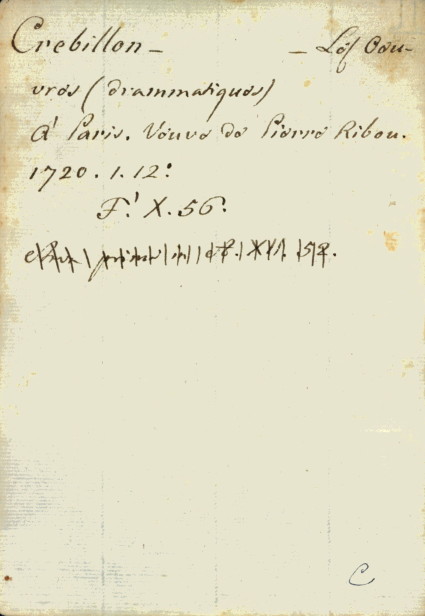 Crebillon — — Les Oeu-
vres (drammatiques)
A' Paris. Veuve de Pierre Ribou.
1720. 1. 12:
F.' X. 56.
C